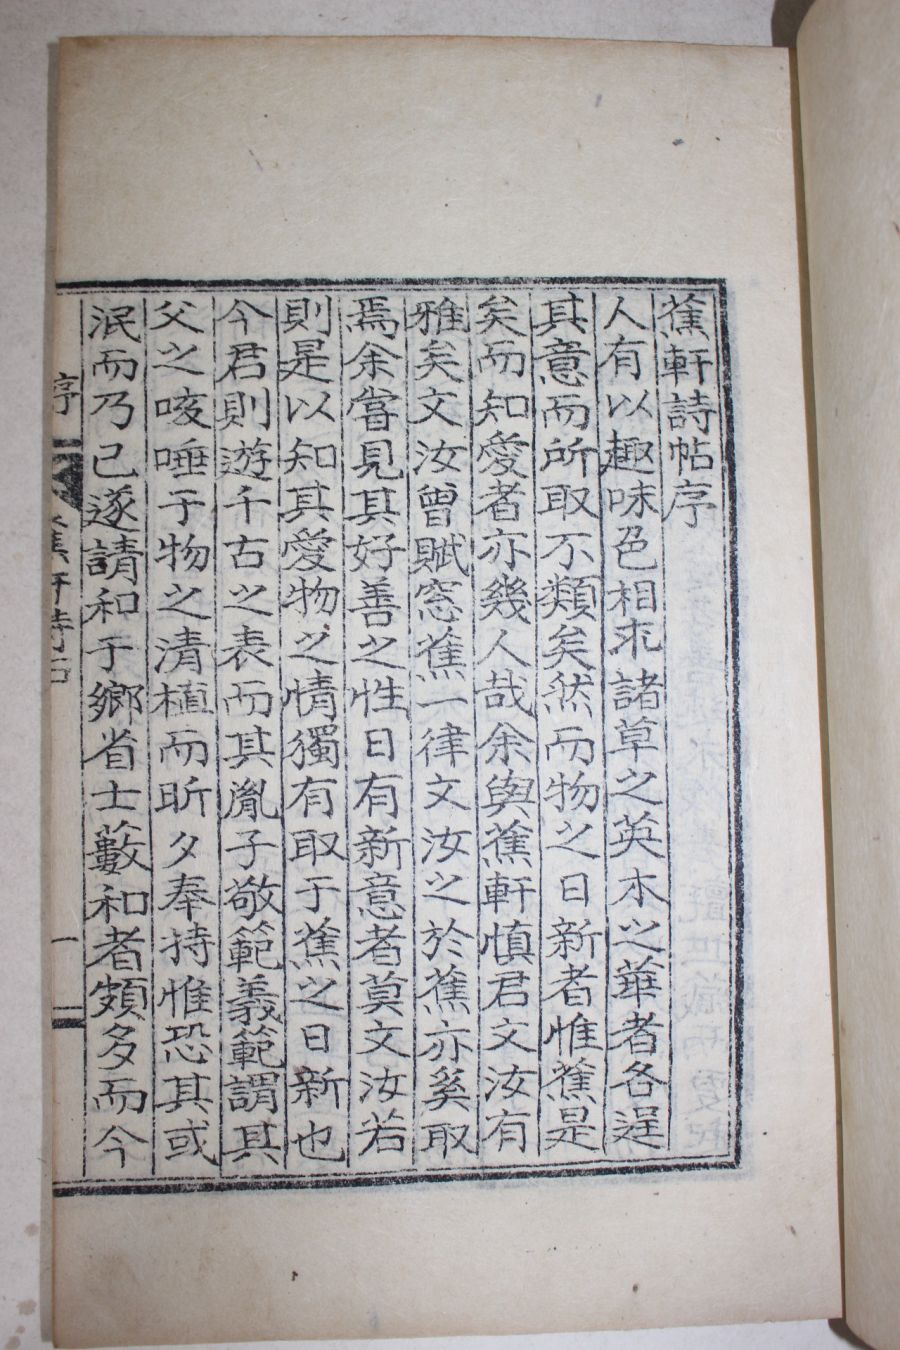 蕉軒詩帖序
人有以趣味色相求諸草之英木之華者各逞
其意而所取不類矣然而物之日新者惟蕉是
矣而知愛者亦幾人哉余與蕉軒慎君文汝有
雅矣文汝曾賦窓蕉一律文汝之於蕉亦奚取
焉余嘗見其好善之性日有新意者莫文汝若
則是以知其愛物之情獨有取于蕉之日新也
今君則遊千古之表而其胤子敬範義範謂其
父之咳唾于物之清植而昕夕奉持惟恐其或
泯而乃已遂請和于鄉省士藪和者頗多而今
序
蕉軒詩帖
一